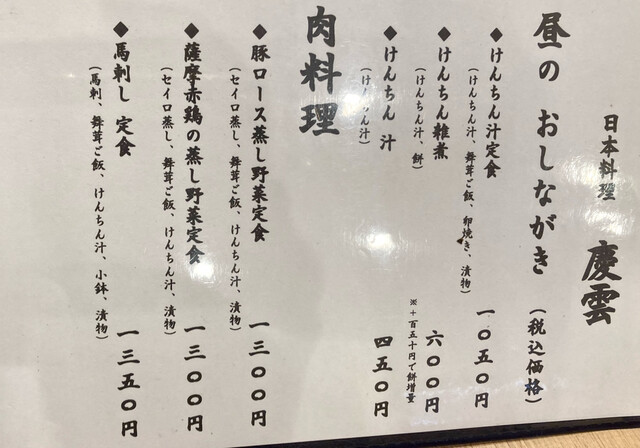 日本料理 慶雲
昼の おしながき (税込価格)
◆けんちん汁定食 一〇五〇円
(けんちん汁、舞茸ご飯、卵焼き、漬物)
◆けんちん雑煮 六〇〇円
(けんちん汁、餅)
※+百五十円で餅増量
◆けんちん汁 四五〇円
(けんちん汁)
肉料理
◆豚ロース蒸し野菜定食 一三〇〇円
(セイロ蒸し、舞茸ご飯、けんちん汁、漬物)
◆薩摩赤鶏の蒸し野菜定食 一三〇〇円
(セイロ蒸し、舞茸ご飯、けんちん汁、漬物)
◆馬刺し 定食 一三五〇円
(馬刺、舞茸ご飯、けんちん汁、小鉢、漬物)